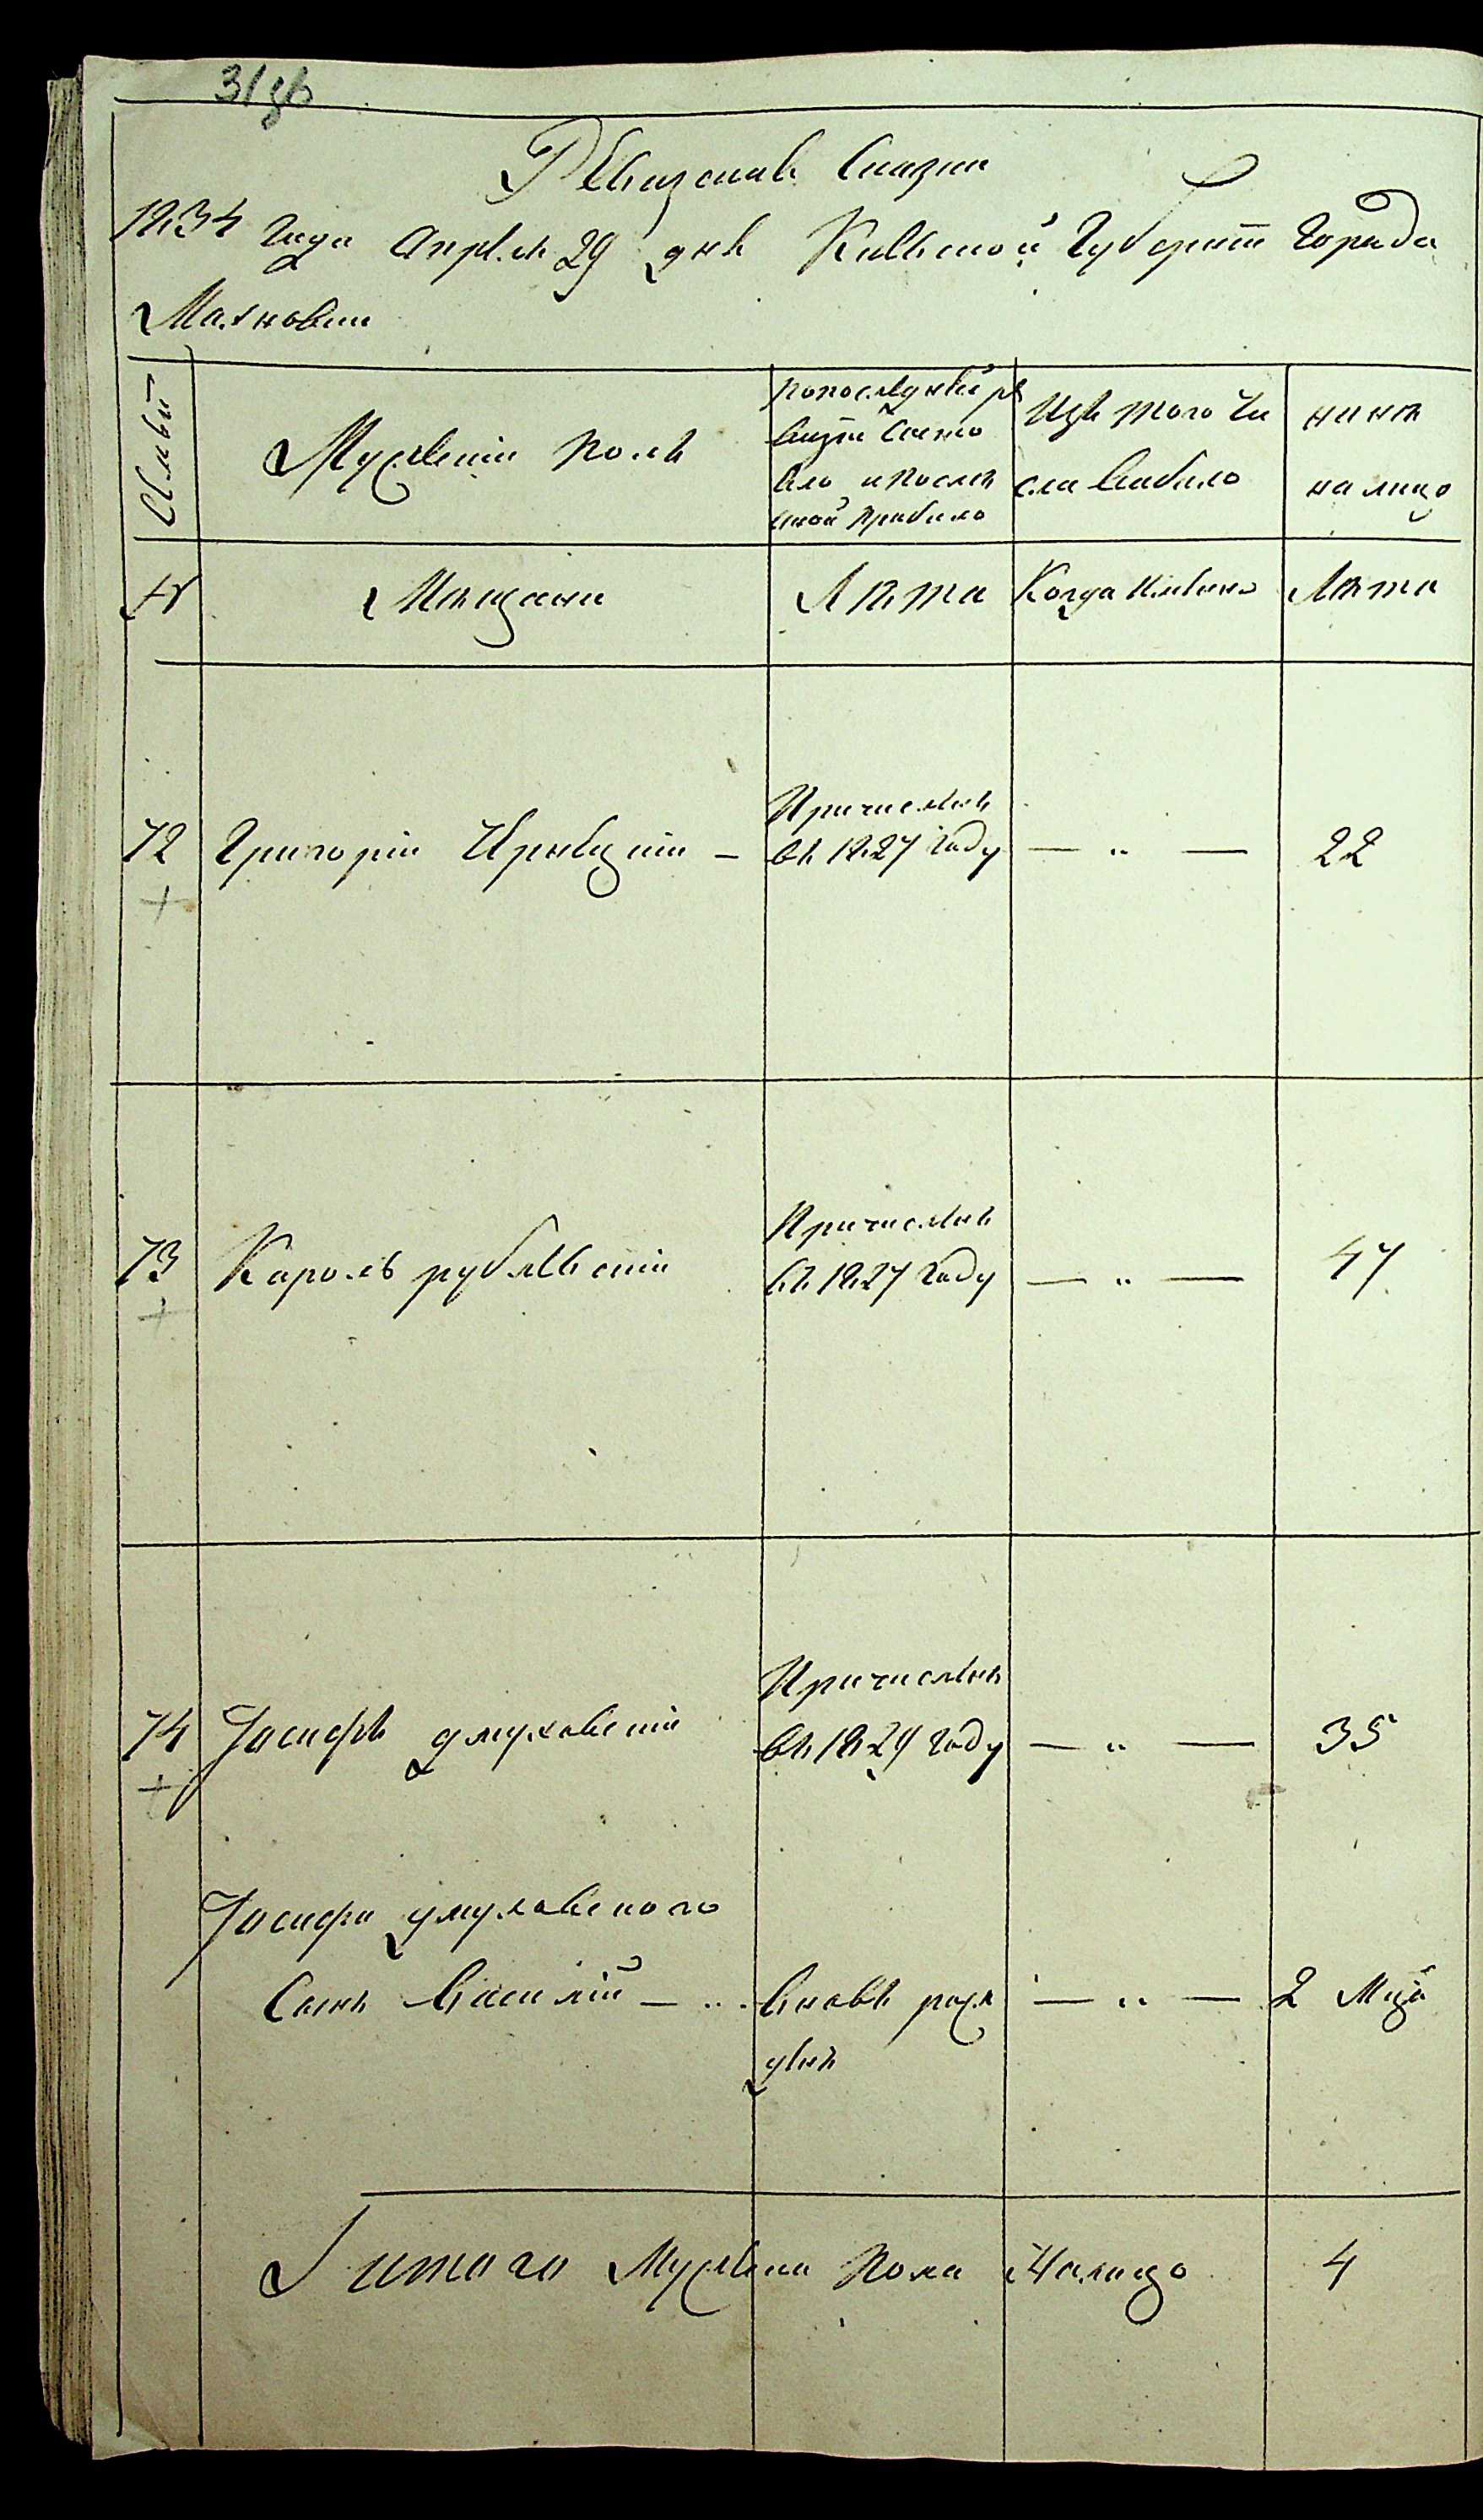 Ревизская Сказка
1834 Года Апреля 29 дня Киевской Губернии Города
Махновки
Семьи
Мужеский полъ
по последней ре
визии Состо
яло и после
оной прибыло
Изъ того Чи
сла выбыло
ныне
на лицо
№
Мещане
Лета
Когда Именно
Лета
72
Григорий
Причисленъ
въ 1827 Году
— " —
22
73
Кароль рублевский
Причисленъ
въ 1827 Году
— " —
47
74
Иосифъ дмуховский
Причисленъ
въ 1829 Году
— " —
35
Иосифа дмуховского
Сынъ Василий
вновь рож
денъ
— " —
2 Мца
Итого Мужеска Пола Налицо
4